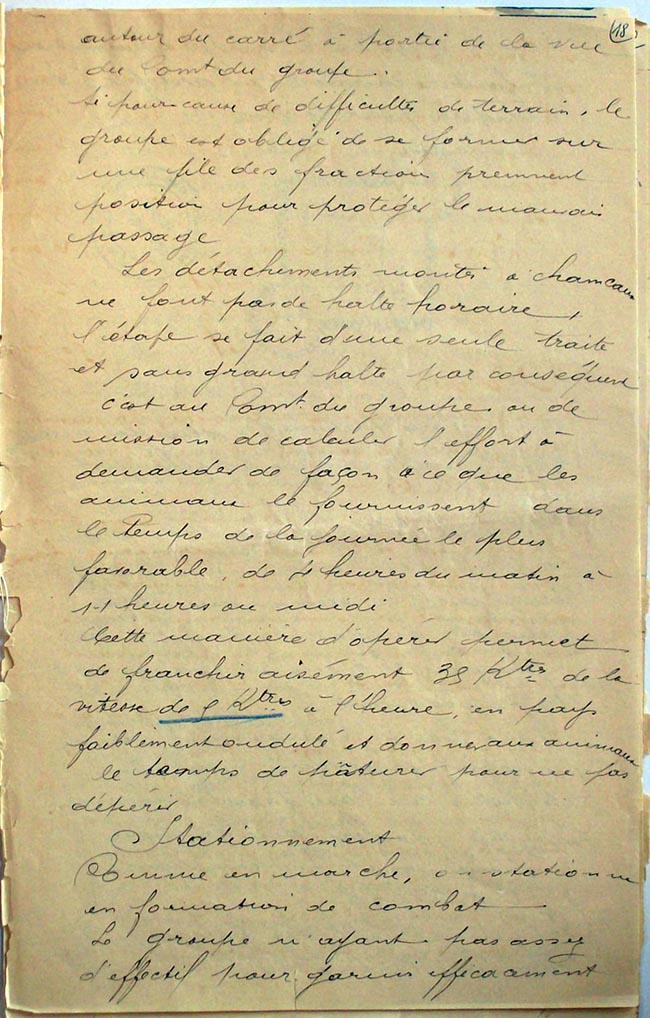 18
autour du carré à portée de la vue
du Comt du groupe.
Si pour cause de difficultés de terrain, le
groupe est obligé de se former sur
une file des fraction prennent
position pour protéger le mauvais
passage
Les détachements montés à chameaux
ne font pas de halte horaire,
l'étape se fait d'une seule traite
et sans grand halte par conséquent
c'est au Comt. du groupe ou de
mission de calculer l'effort à
demander de façon à ce que les
animaux le fournissent dans
le temps de la journée le plus
favorable, de 4 heures du matin à
11 heures ou midi
Cette manière d'opérer permet
de franchir aisément 35 Ktres de la
vitesse de 5 Ktres à l'heure, en pays
faiblement ondulé et donner aux animaux
le temps de pâturer pour ne pas
dépérir
Stationnement
Comme en marche, on stationne
en formation de combat
Le groupe n'ayant pas assez
d'effectif pour garnir efficacement